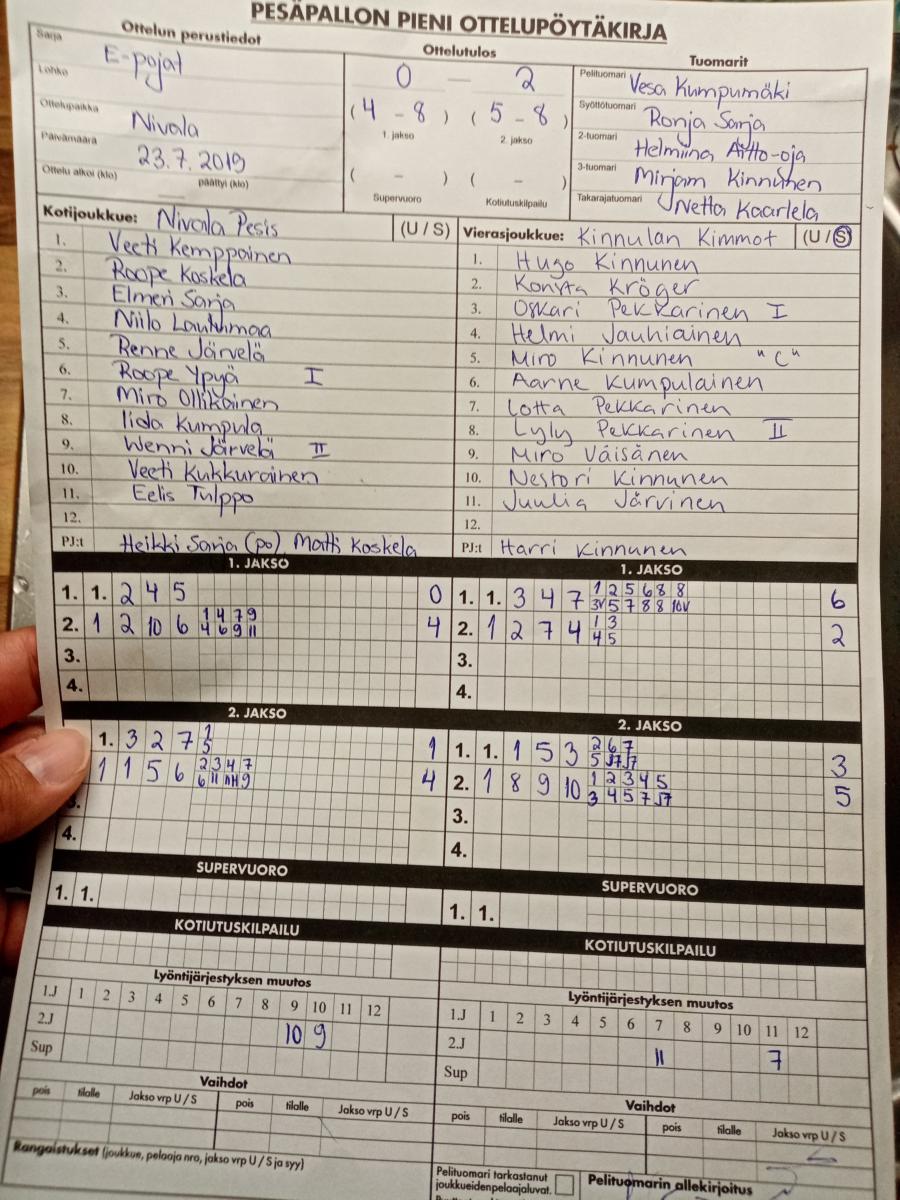 PESÄPALLON PIENI OTTELUPÖYTÄKIRJA
Ottelun perustiedot
Sarja E-pojat
Lohko
Ottelupaikka Nivala
Päivämäärä 23.7.2019
Ottelu alkoi (klo) päättyi (klo)
Ottelutulos
0 – 2
(4 - 8) (5 - 8)
1. jakso 2. jakso
( - ) ( - )
Supervuoro Kotiutuskilpailu
Tuomarit
Pelituomari Vesa Kumpumäki
Syöttötuomari Ronja Sarja
2-tuomari Helmiina Aitto-oja
3-tuomari Mirjam Kinnunen
Takarajatuomari Netta Kaarlela
Kotijoukkue: Nivala Pesis (U / S)
1. Veeti Kemppainen
2. Roope Koskela
3. Elmeri Sarja
4. Niilo Lauthmaa
5. Renne Järvelä
6. Roope Ypyä I
7. Miro Ollikainen
8. Iida Kumpula
9. Wenni Järvelä II
10. Veeti Kukkurainen
11. Eelis Tulppo
12.
PJ:t Heikki Sarja (po) Matti Koskela
Vierasjoukkue: Kinnulan Kimmot (U / S)
1. Hugo Kinnunen
2. Konsta Kröger
3. Oskari Pekkarinen I
4. Helmi Jauhiainen
5. Miro Kinnunen "C"
6. Aarne Kumpulainen
7. Lotta Pekkarinen
8. Lyly Pekkarinen II
9. Miro Väisänen
10. Nestori Kinnunen
11. Juulia Järvinen
12.
PJ:t Harri Kinnunen
1. JAKSO
1. 1. 2 4 5 0
2. 1 2 10 6 1 4 7 9 4
4 6 9 11
3.
4.
1. JAKSO
1. 1. 3 4 7 1 2 5 6 8 8 6
3V 5 7 8 8 10V
2. 1 2 7 4 1 3 2
4 5
3.
4.
2. JAKSO
1. 3 2 7 1 1
5
1 1 5 6 2 3 4 7 4
6 11 9
3.
4.
2. JAKSO
1. 1. 1 5 3 2 6 7 3
5
2. 1 8 9 10 1 2 3 4 5 5
3 4 5 7
3.
4.
SUPERVUORO
1. 1.
SUPERVUORO
1. 1.
KOTIUTUSKILPAILU
KOTIUTUSKILPAILU
Lyöntijärjestyksen muutos
1.J 1 2 3 4 5 6 7 8 9 10 11 12
2.J 10 9
Sup
Lyöntijärjestyksen muutos
1.J 1 2 3 4 5 6 7 8 9 10 11 12
2.J 11 7
Sup
Vaihdot
pois tilalle Jakso vrp U / S pois tilalle Jakso vrp U / S
Vaihdot
pois tilalle Jakso vrp U / S pois tilalle Jakso vrp U / S
Rangaistukset (joukkue, pelaaja nro, jakso vrp U / S ja syy)
Pelituomari tarkastanut
joukkueidenpelaajaluvat.
Pelituomarin allekirjoitus